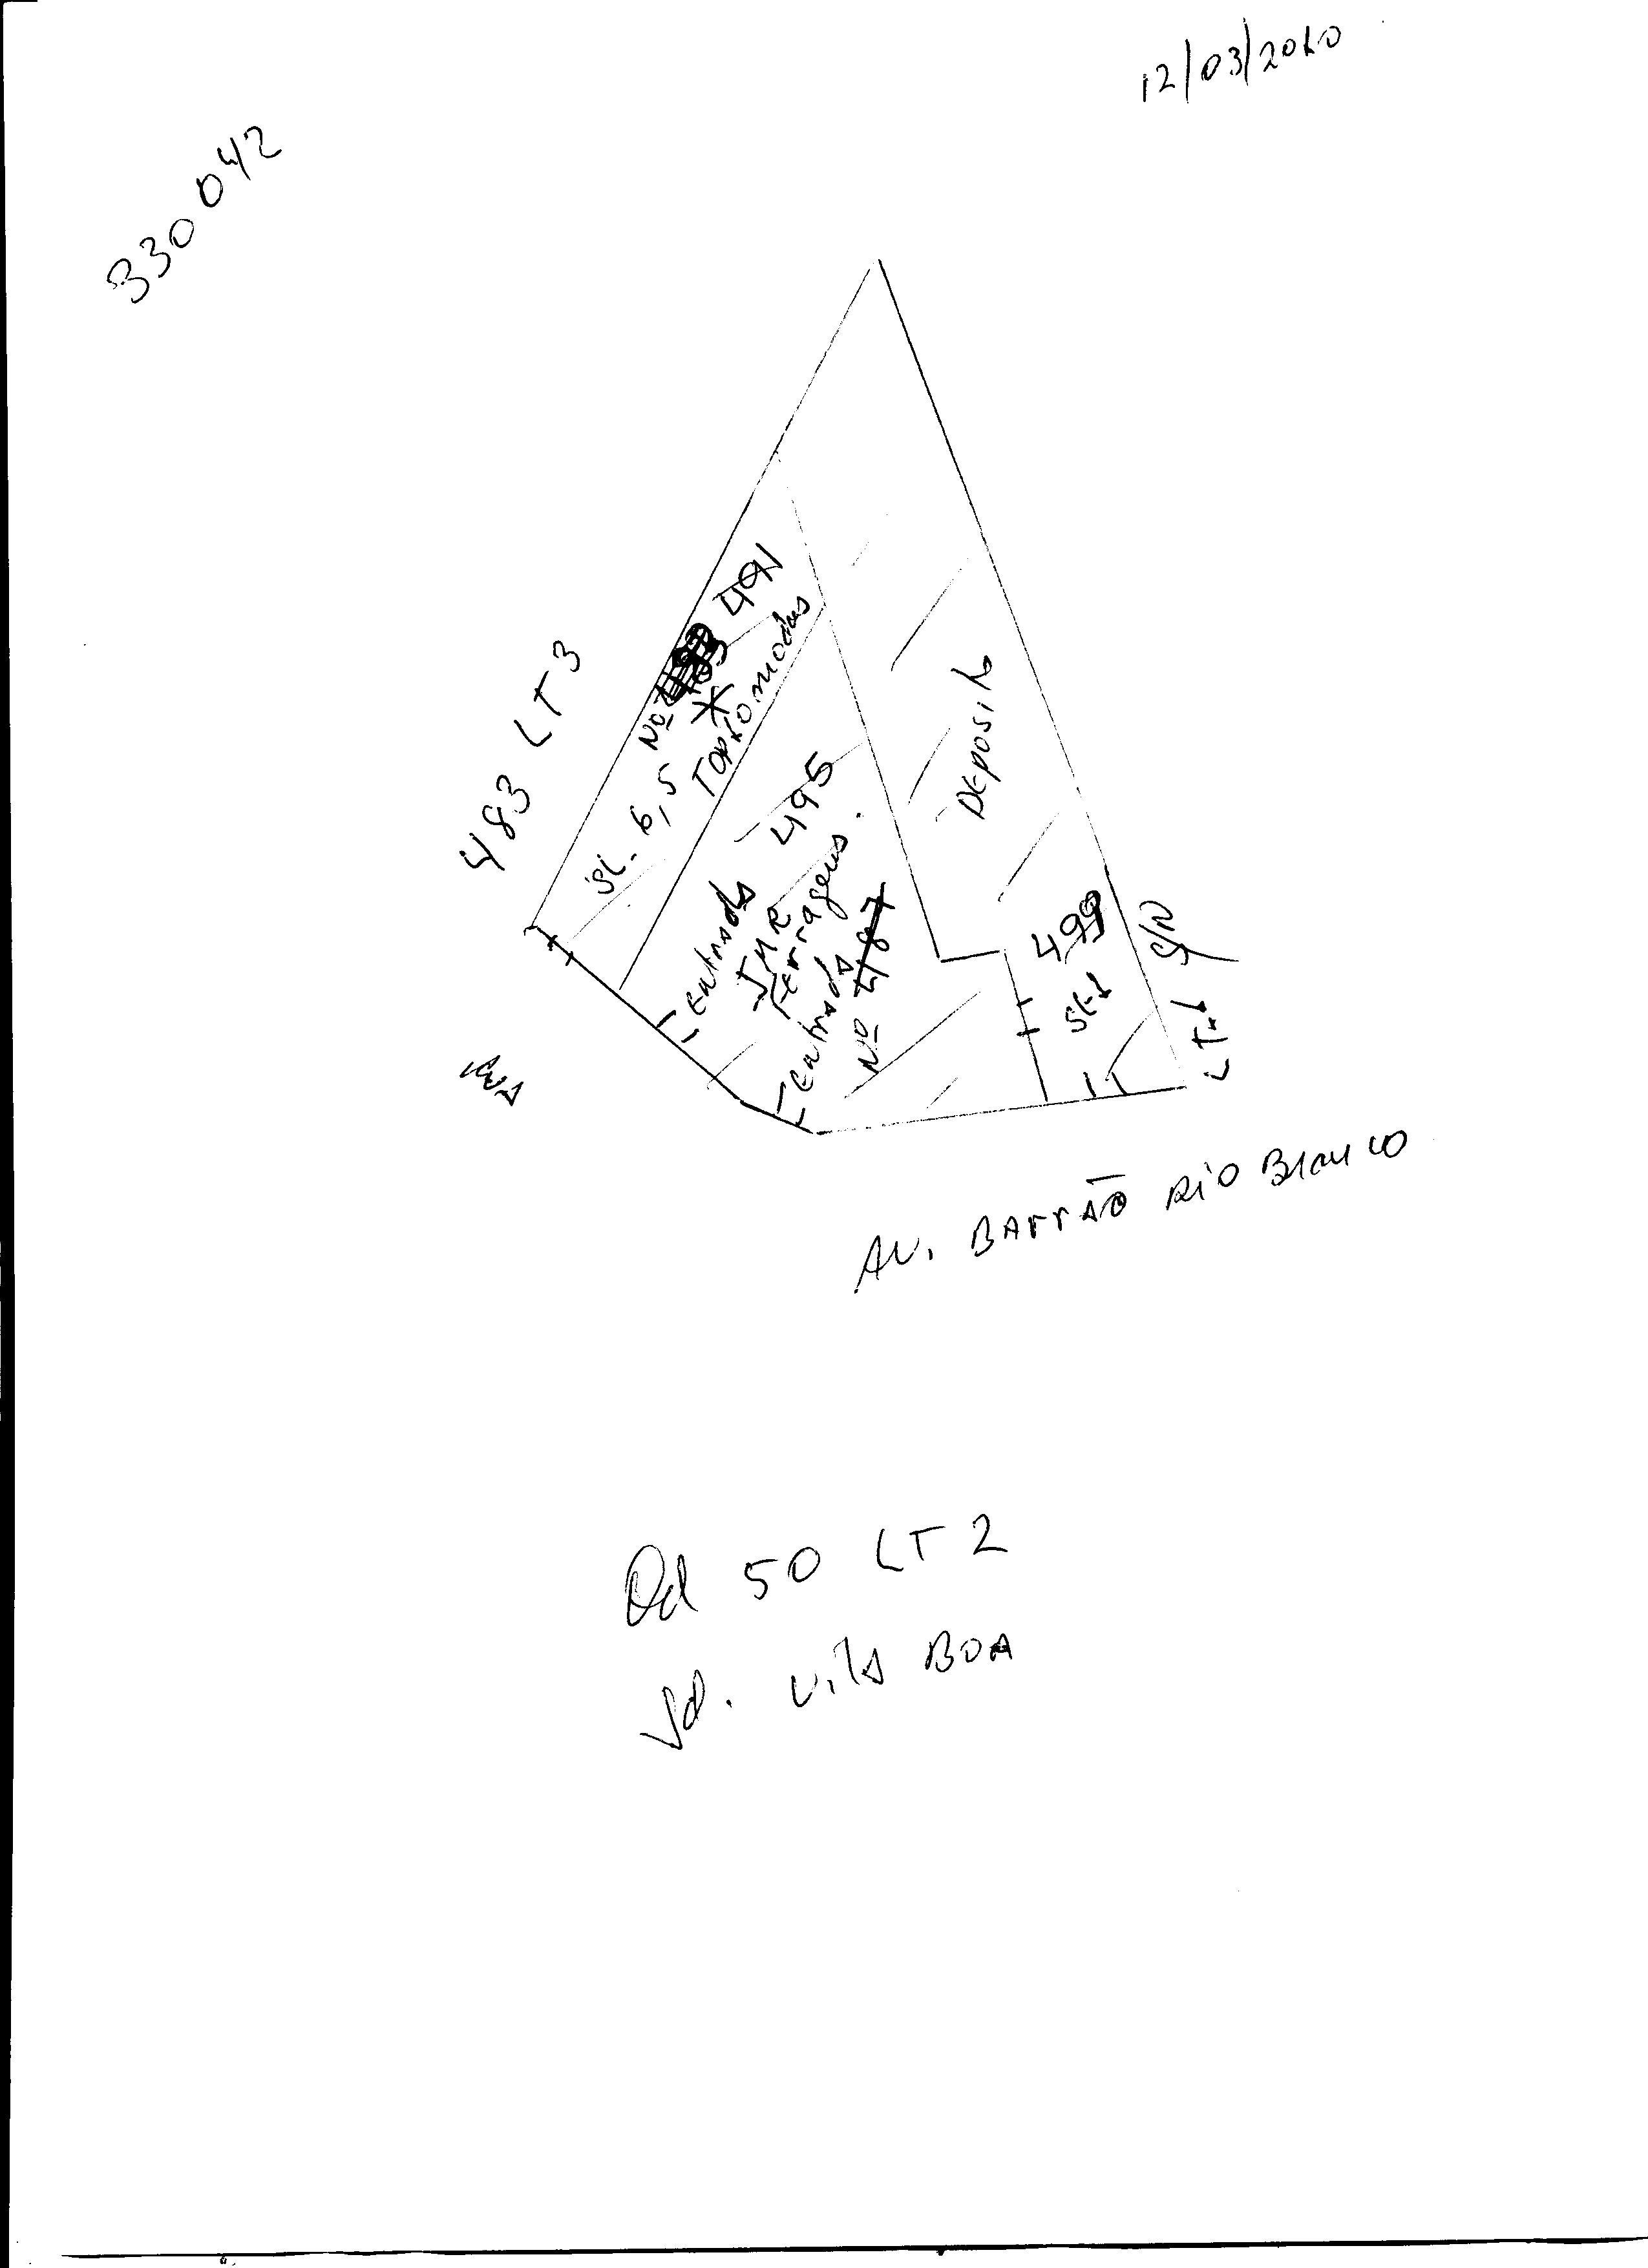 12/03/2010
330042
483 LT 3
Nº 491
SL. 6,5
modas
Deposito
495
entrada
JMR
Ferragens.
entrada
Nº 487
499
SL-1
S/N
LT-1
Rua
AV. BARRÃO RIO BRANCO
Qd 50 LT 2
Jd. Vila BOA